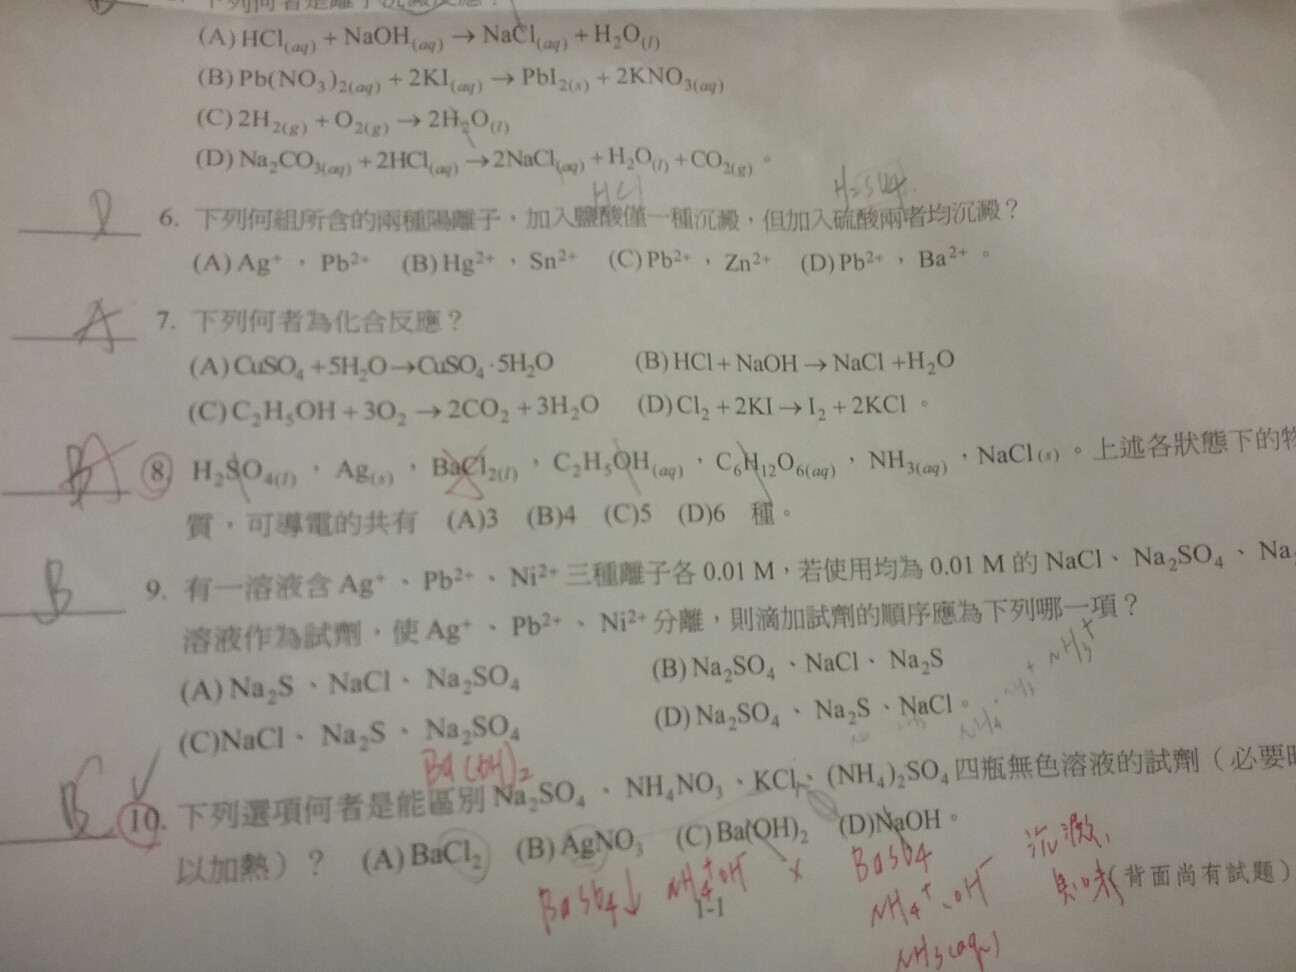 下列何者是離子沉澱反應？
(A) HCl(aq) + NaOH(aq) → NaCl(aq) + H₂O(l)
(B) Pb(NO₃)₂(aq) + 2KI(aq) → PbI₂(s) + 2KNO₃(aq)
(C) 2H₂(g) + O₂(g) → 2H₂O(l)
(D) Na₂CO₃(aq) + 2HCl(aq) → 2NaCl(aq) + H₂O(l) + CO₂(g)。
HCl H₂SO₄
D 6. 下列何組所含的兩種陽離子，加入鹽酸僅一種沉澱，但加入硫酸兩者均沉澱？
(A) Ag⁺，Pb²⁺ (B) Hg²⁺，Sn²⁺ (C) Pb²⁺，Zn²⁺ (D) Pb²⁺，Ba²⁺。
A 7. 下列何者為化合反應？
(A) CuSO₄ + 5H₂O → CuSO₄·5H₂O (B) HCl + NaOH → NaCl + H₂O
(C) C₂H₅OH + 3O₂ → 2CO₂ + 3H₂O (D) Cl₂ + 2KI → I₂ + 2KCl。
8. H₂SO₄(l)，Ag(s)，BaCl₂(l)，C₂H₅OH(aq)，C₆H₁₂O₆(aq)，NH₃(aq)，NaCl(s)。上述各狀態下的物
質，可導電的共有 (A)3 (B)4 (C)5 (D)6 種。
B 9. 有一溶液含 Ag⁺、Pb²⁺、Ni²⁺ 三種離子各 0.01 M，若使用均為 0.01 M 的 NaCl、Na₂SO₄、Na
溶液作為試劑，使 Ag⁺、Pb²⁺、Ni²⁺ 分離，則滴加試劑的順序應為下列哪一項？
(A) Na₂S、NaCl、Na₂SO₄ (B) Na₂SO₄、NaCl、Na₂S
(C) NaCl、Na₂S、Na₂SO₄ (D) Na₂SO₄、Na₂S、NaCl。
Ba(OH)₂
10. 下列選項何者是能區別 Na₂SO₄、NH₄NO₃、KCl、(NH₄)₂SO₄ 四瓶無色溶液的試劑（必要時
以加熱）？ (A) BaCl₂ (B) AgNO₃ (C) Ba(OH)₂ (D) NaOH。
BaSO₄↓ NH₄⁺OH⁻ × BaSO₄ 沉澱,
NH₄⁺、OH⁻ 臭味
NH₃(aq)
1-1
（背面尚有試題）